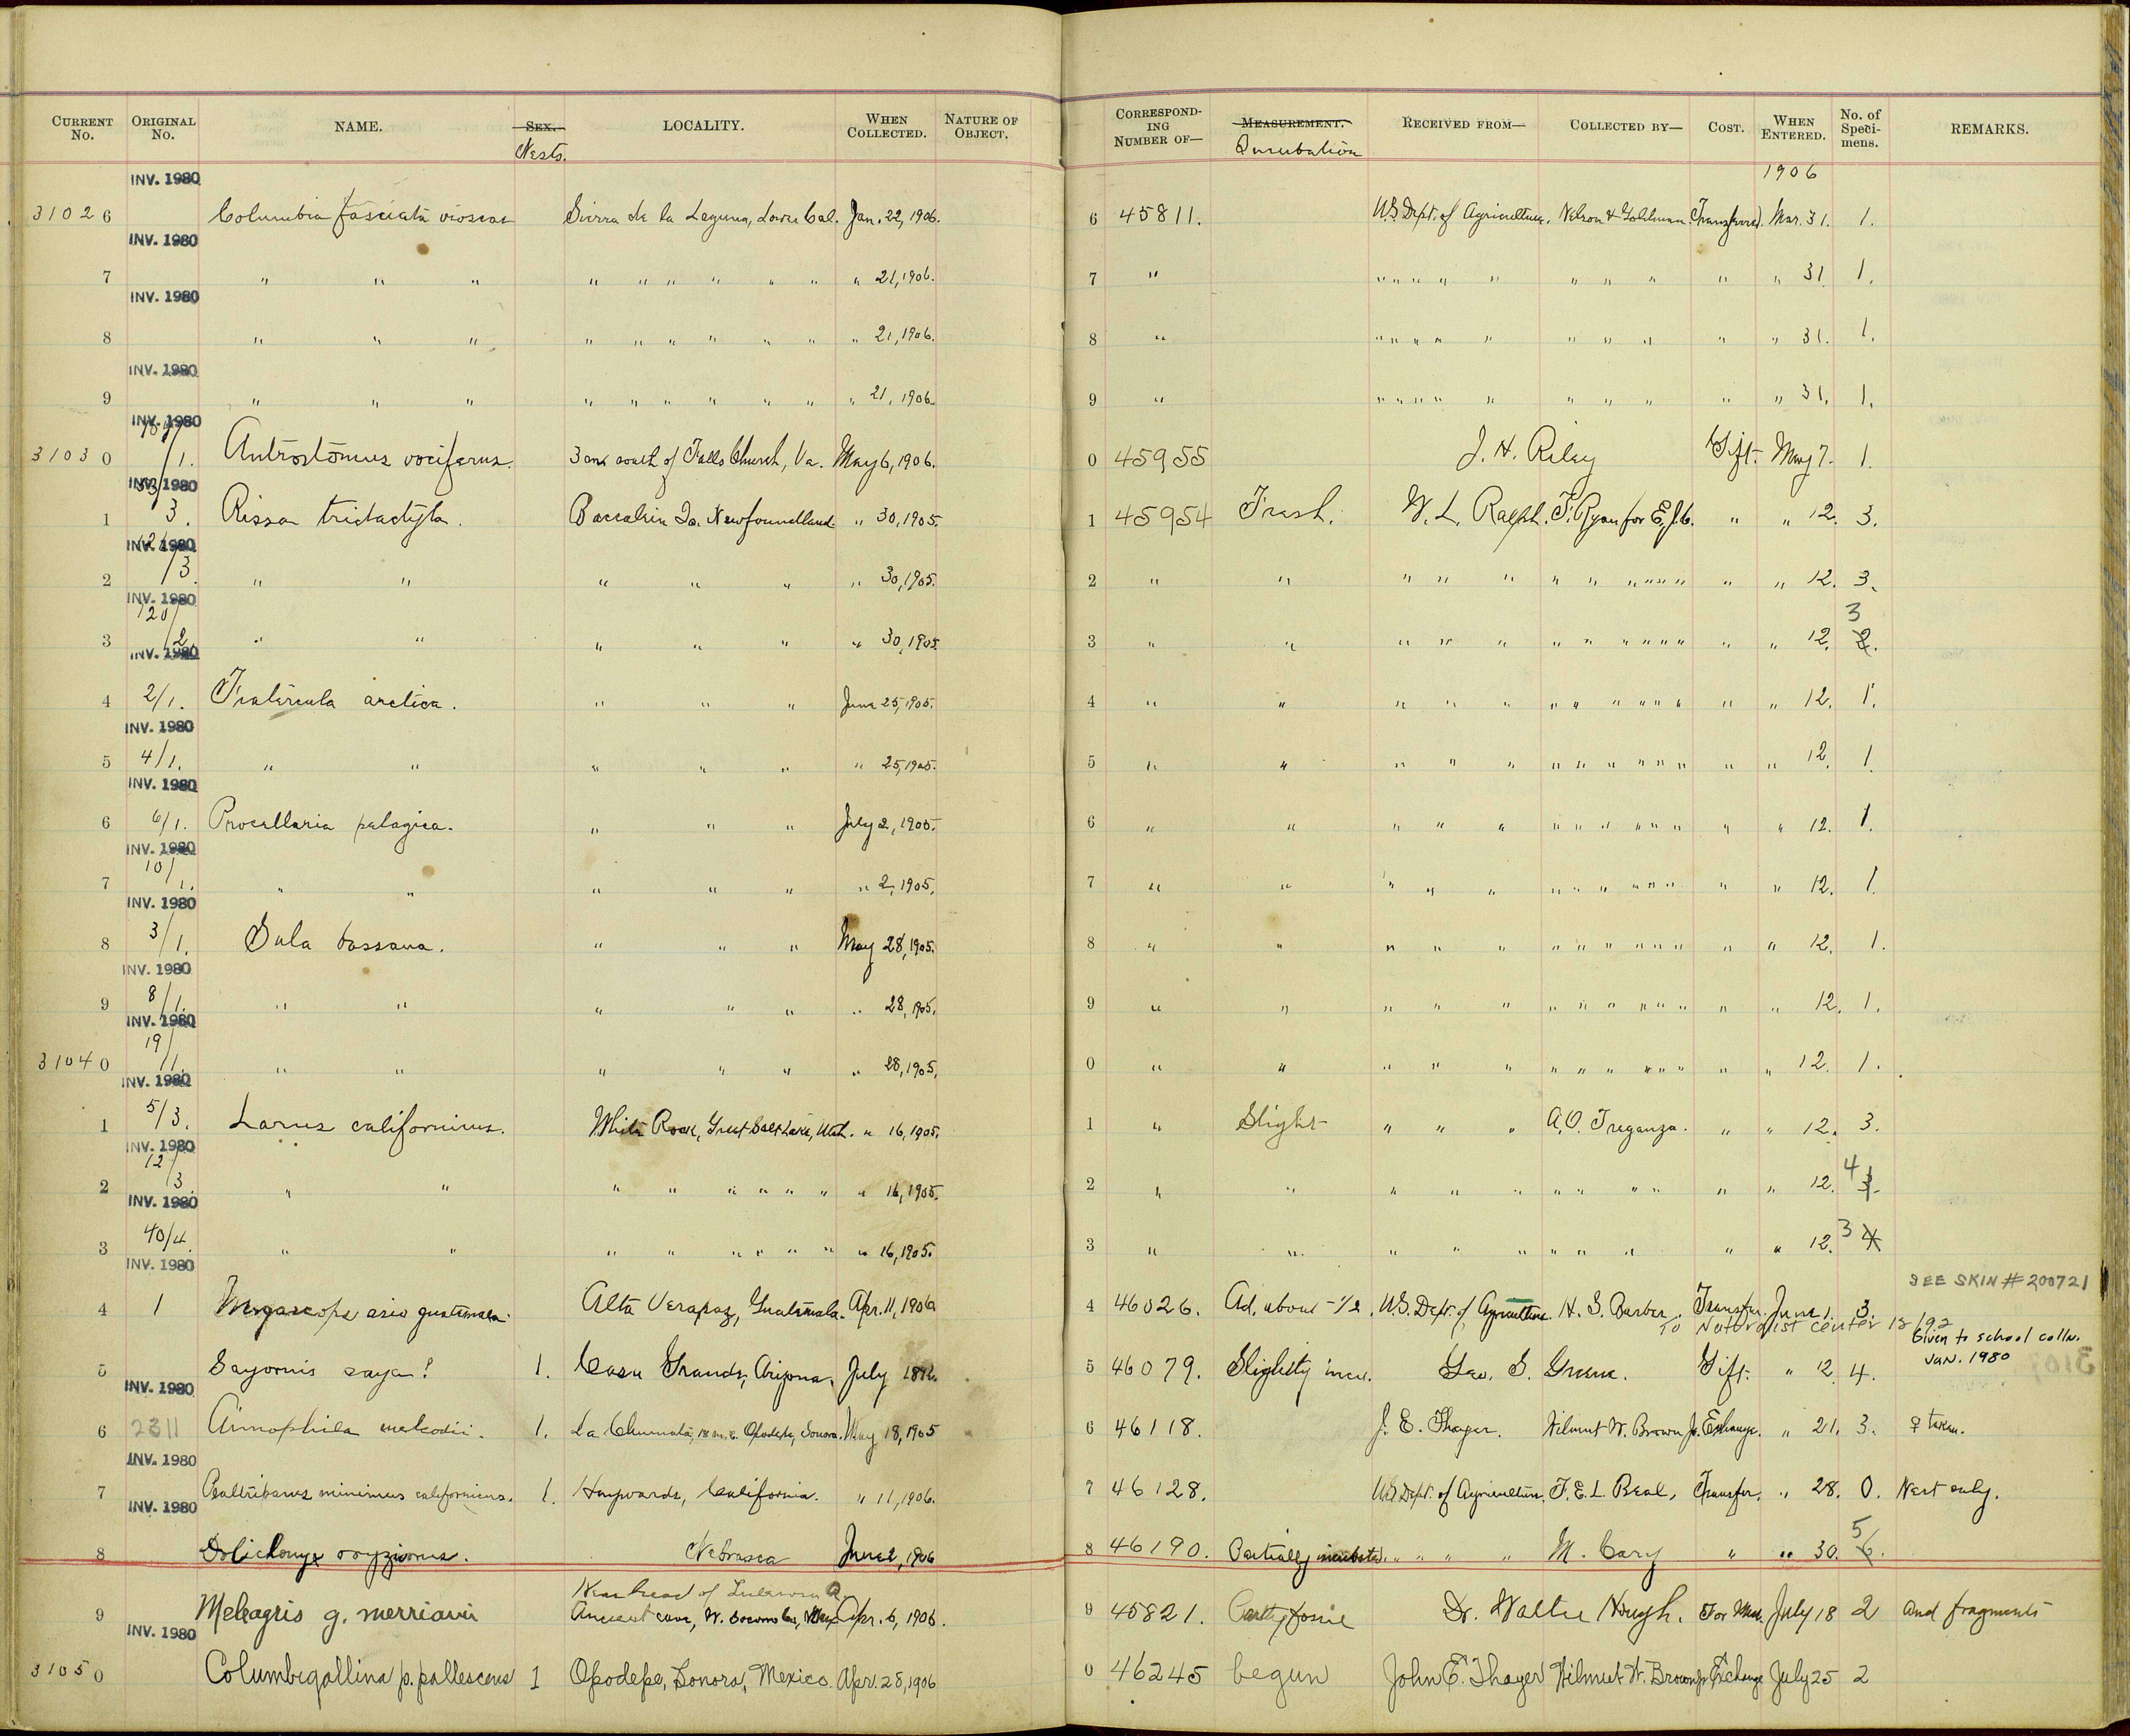 CURRENT No. ORIGINAL No. NAME. SEX. Nests. LOCALITY. WHEN COLLECTED. NATURE OF OBJECT. CORRESPONDING NUMBER OF— MEASUREMENT. Incubation RECEIVED FROM— COLLECTED BY— COST. WHEN ENTERED. No. of Specimens. REMARKS.
INV. 1980 1906
31026 Columbia fasciata vioscae Sierra de la Laguna, Lower Cal. Jan. 22, 1906. 6 45811. U.S. Dept. of Agriculture. Nelson & Goldman. Transferred. Mar. 31. 1.
INV. 1980
7 " " " " " " " " " " 21, 1906. 7 " " " " " " " " " " " 31. 1.
INV. 1980
8 " " " " " " " " " " 21, 1906. 8 " " " " " " " " " " " 31. 1.
INV. 1980
9 " " " " " " " " " " 21, 1906. 9 " " " " " " " " " " " 31. 1.
INV. 1980
31030 /1. Antrostomus vociferus. 3 south of Falls Church, Va. May 6, 1906. 0 45955 J. H. Riley Gift. May 7. 1.
INV. 1980
1 3. Rissa tridactyla. Baccalieu Is. Newfoundland. " 30, 1905. 1 45954 Fresh. W. L. Ralph. T. Ryan for E.J.C. " " 12. 3.
INV. 1980
2 /3. " " " " " " 30, 1905. 2 " " " " " " " " " " " " " 12. 3.
INV. 1980
120/ 3
3 /2. " " " " " " 30, 1905. 3 " " " " " " " " " " " " " 12. 2.
INV. 1980
4 2/1. Fratercula arctica. " " " June 25, 1905. 4 " " " " " " " " " " " " " 12. 1.
INV. 1980
5 4/1. " " " " " " 25, 1905. 5 " " " " " " " " " " " " " 12. 1.
INV. 1980
6 6/1. Procellaria pelagica. " " " July 2, 1905. 6 " " " " " " " " " " " " " 12. 1.
INV. 1980
7 10/1. " " " " " " 2, 1905. 7 " " " " " " " " " " " " " 12. 1.
INV. 1980
8 3/1. Sula bassana. " " " May 28, 1905. 8 " " " " " " " " " " " " " 12. 1.
INV. 1980
9 8/1. " " " " " " 28, 1905. 9 " " " " " " " " " " " " " 12. 1.
INV. 1980
31040 19/1. " " " " " " 28, 1905. 0 " " " " " " " " " " " " " 12. 1.
INV. 1980
1 5/3. Larus californicus. White Rock, Great Salt Lake, Utah. " 16, 1905. 1 " Slight " " " A.O. Treganza. " " 12. 3.
INV. 1980
2 12/3. " " " " " " " " " 16, 1905. 2 " " " " " " " " " " " 12. 4 3.
INV. 1980
3 40/4. " " " " " " " " " 16, 1905. 3 " " " " " " " " " " 12. 3 4
INV. 1980 SEE SKIN # 200721
4 1 Megascops asio guatemalæ. Alta Verapaz, Guatemala. Apr. 11, 1906 4 46026. Ad. about 1/2. U.S. Dept. of Agriculture. H. S. Barber. Transfer. June 1. 3.
To Naturalist Center 12/92
Given to school colln. JAN. 1980
5 Sayornis saya? 1. Casa Grande, Arizona, July 1892. 5 46079. Slightly incu. Geo. S. Greene. Gift. " 2. 4.
INV. 1980
6 2311 Aimophila mcleodii. 1. La Chumata, 18 m. E. Opodepe, Sonora. May 18, 1905 6 46118. J. E. Thayer. Wilmot W. Brown Jr. Exchange. " 21. 3. ♀ taken.
INV. 1980
7 Psaltriparus minimus californicus. 1. Haywards, California. " 11, 1906. 7 46128. U.S. Dept. of Agriculture. F. E. L. Beal, Transfer. " 28. 0. Nest only.
INV. 1980
8 Dolichonyx oryzivorus. Nebrasca June 2, 1906 8 46190. Partially incubated. " " " " M. Cary " " 30. 5 6.
Near head of
9 Meleagris g. merriami Ancient cave, Apr. 6, 1906. 9 45821. Dr. Walter Hough. For Mus. July 18 2 and fragments
INV. 1980
31050 Columbigallina p. pallescens 1 Opodepe, Sonora, Mexico. Apr. 28, 1906 0 46245 begun John E. Thayer Wilmot W. Brown Jr. Exchange July 25 2